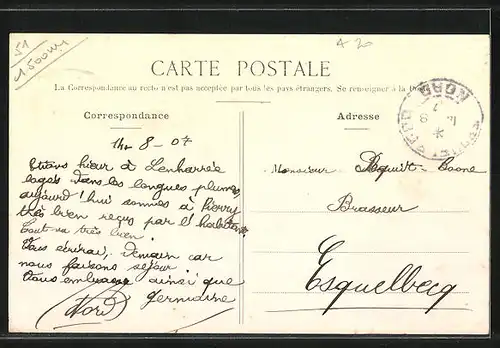 51
1500m
A 20
CARTE POSTALE
La Correspondance au recto n'est pas acceptée par tous les pays étrangers. Se renseigner à la Poste
Correspondance
Adresse
NORD
14 - 8 - 07
Etions hier à Lenharrée
logés dans les longues plumes,
aujourd'hui sommes à Pierry
très bien reçus par l'habitant.
Tout va très bien.
Vous écrirai, demain car
nous faisons séjour.
Vous embrasse ainsi que
Germaine
Monsieur Boone
Brasseur
Esquelbecq